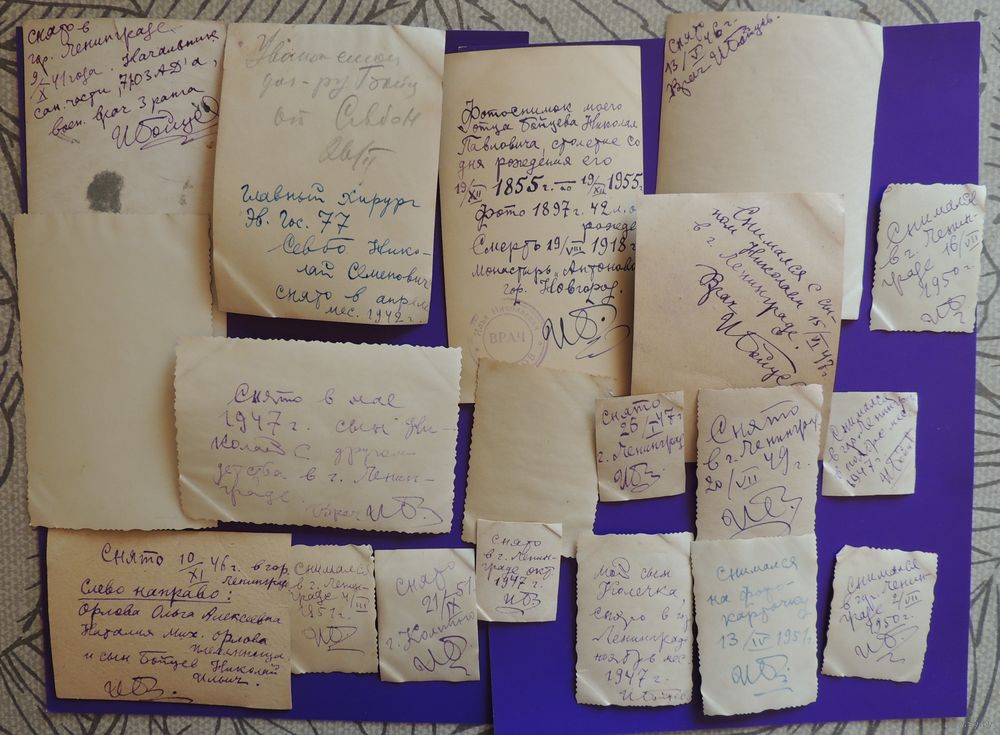 снято в
гор. Ленинграде
9/X-41 года. Начальник
сан. части, 7103 АД'а,
воен. врач 3 ранга
ИБойцев
от Севбо
26/II
Главный хирург
Эв. Гос. 77
Севбо Нико-
лай Семенович
снято в апреле
мес. 1942 г.
Фотоснимок моего
отца Бойцева Николая
Павловича, столетие со
дня рождения его
19/XII 1855 г. по 19/XII 1955 г.
Фото 1897 г. 42 л. от
рожде
Смерть 19/VIII 1918 г.
монастырь „Антоново"
гор. Новгород.
ВРАЧ
ИБ
Снято
13/VI 46 г.
Врач ИБойцев.
Снимался с сы-
ном Николаем
в г. Ленинграде. 15/VI 47 г.
Врач ИБойцев
Снимался
в г. Ленин-
граде 16/VII
1950 г.
ИБ
Снято в мае
1947 г. сын Ни-
колай с другом
детства в г. Ленин-
граде.
Врач ИБ
снято
26/I 47 г.
г. Ленинград
ИБ
Снято
в г. Ленинград
20/VII 49 г.
ИБ
Снимался
в гор. Ленингр
в ноябре мес
1947 г.
ИБойц
Снято 10/XI 46 г. в гор.
Ленинград
Слево направо:
Орлова Ольга Алексеевна
Наталия Мих. Орлова
племянница
и сын Бойцев Николай
Ильич.
ИБ
Снимался
в г. Ленин-
граде 4/III
1951 г.
ИБ
Снято
21/IX 51 г.
г. Колпино
ИБ
Снято
в г. Ленин-
граде окт
1947 г.
ИБ
мой сын
Колечка,
снято в гор
Ленинград
ноябрь мес
1947 г.
ИБойцев
Снимался
на фото-
карточку
13/VII 1951 г.
ИБ
Снимался
в гор. Ленин-
граде 2/VII
1950 г.
ИБ